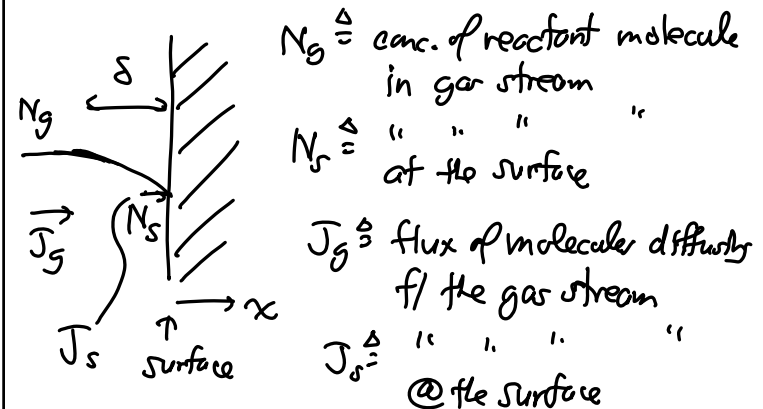 δ
Ng
Ns
Jg
Js
↑
surface
x
Ng ≜ conc. of reactant molecule
in gas stream
Ns ≜ " " " "
at the surface
Jg ≜ flux of molecules diffusing
f/ the gas stream
Js ≜ " " " "
@ the surface